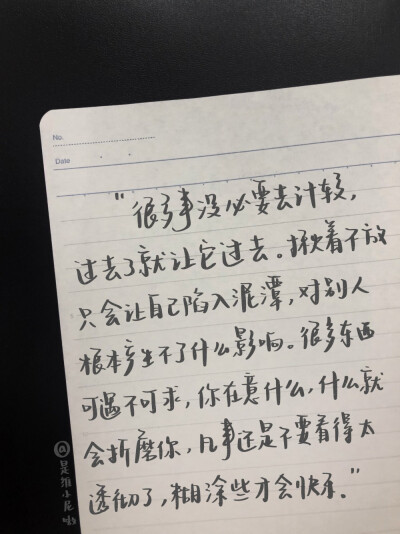 No.
Date
“很多事没必要去计较，
过去了就让它过去。揪着不放
只会让自己陷入泥潭，对别人
根本产生不了什么影响。很多东西
可遇不可求，你在意什么，什么就
会折磨你，凡事还是不要看得太
透彻了，糊涂些才会快乐。”
@是维小尼呦